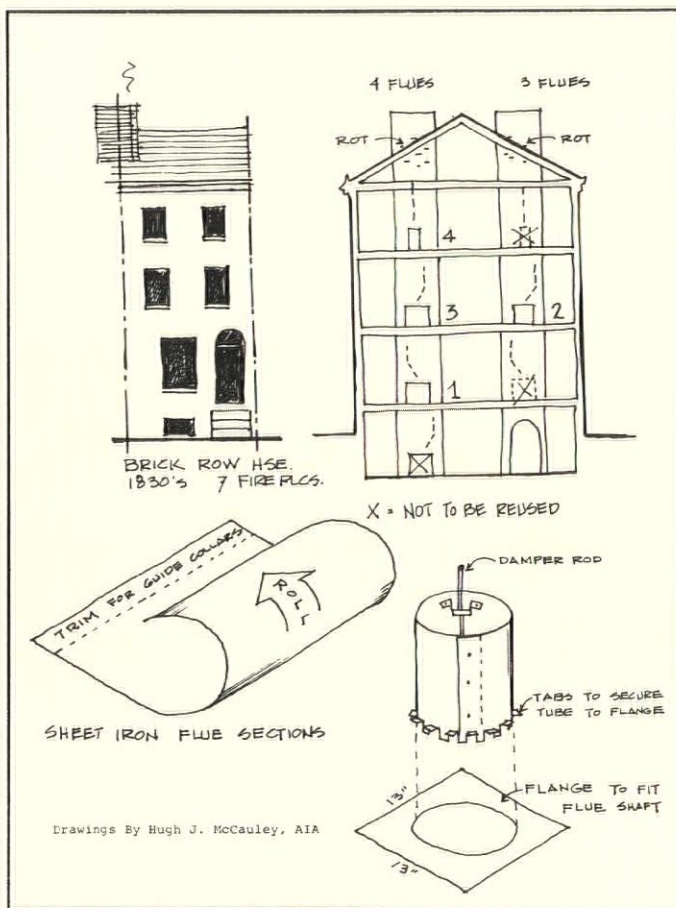 4 FLUES
3 FLUES
ROT
ROT
4
3
2
1
BRICK ROW HSE.
1830's 7 FIREPLCS.
X = NOT TO BE REUSED
TRIM FOR GUIDE COLLARS
ROLL
SHEET IRON FLUE SECTIONS
DAMPER ROD
TABS TO SECURE
TUBE TO FLANGE
13"
13"
FLANGE TO FIT
FLUE SHAFT
Drawings By Hugh J. McCauley, AIA